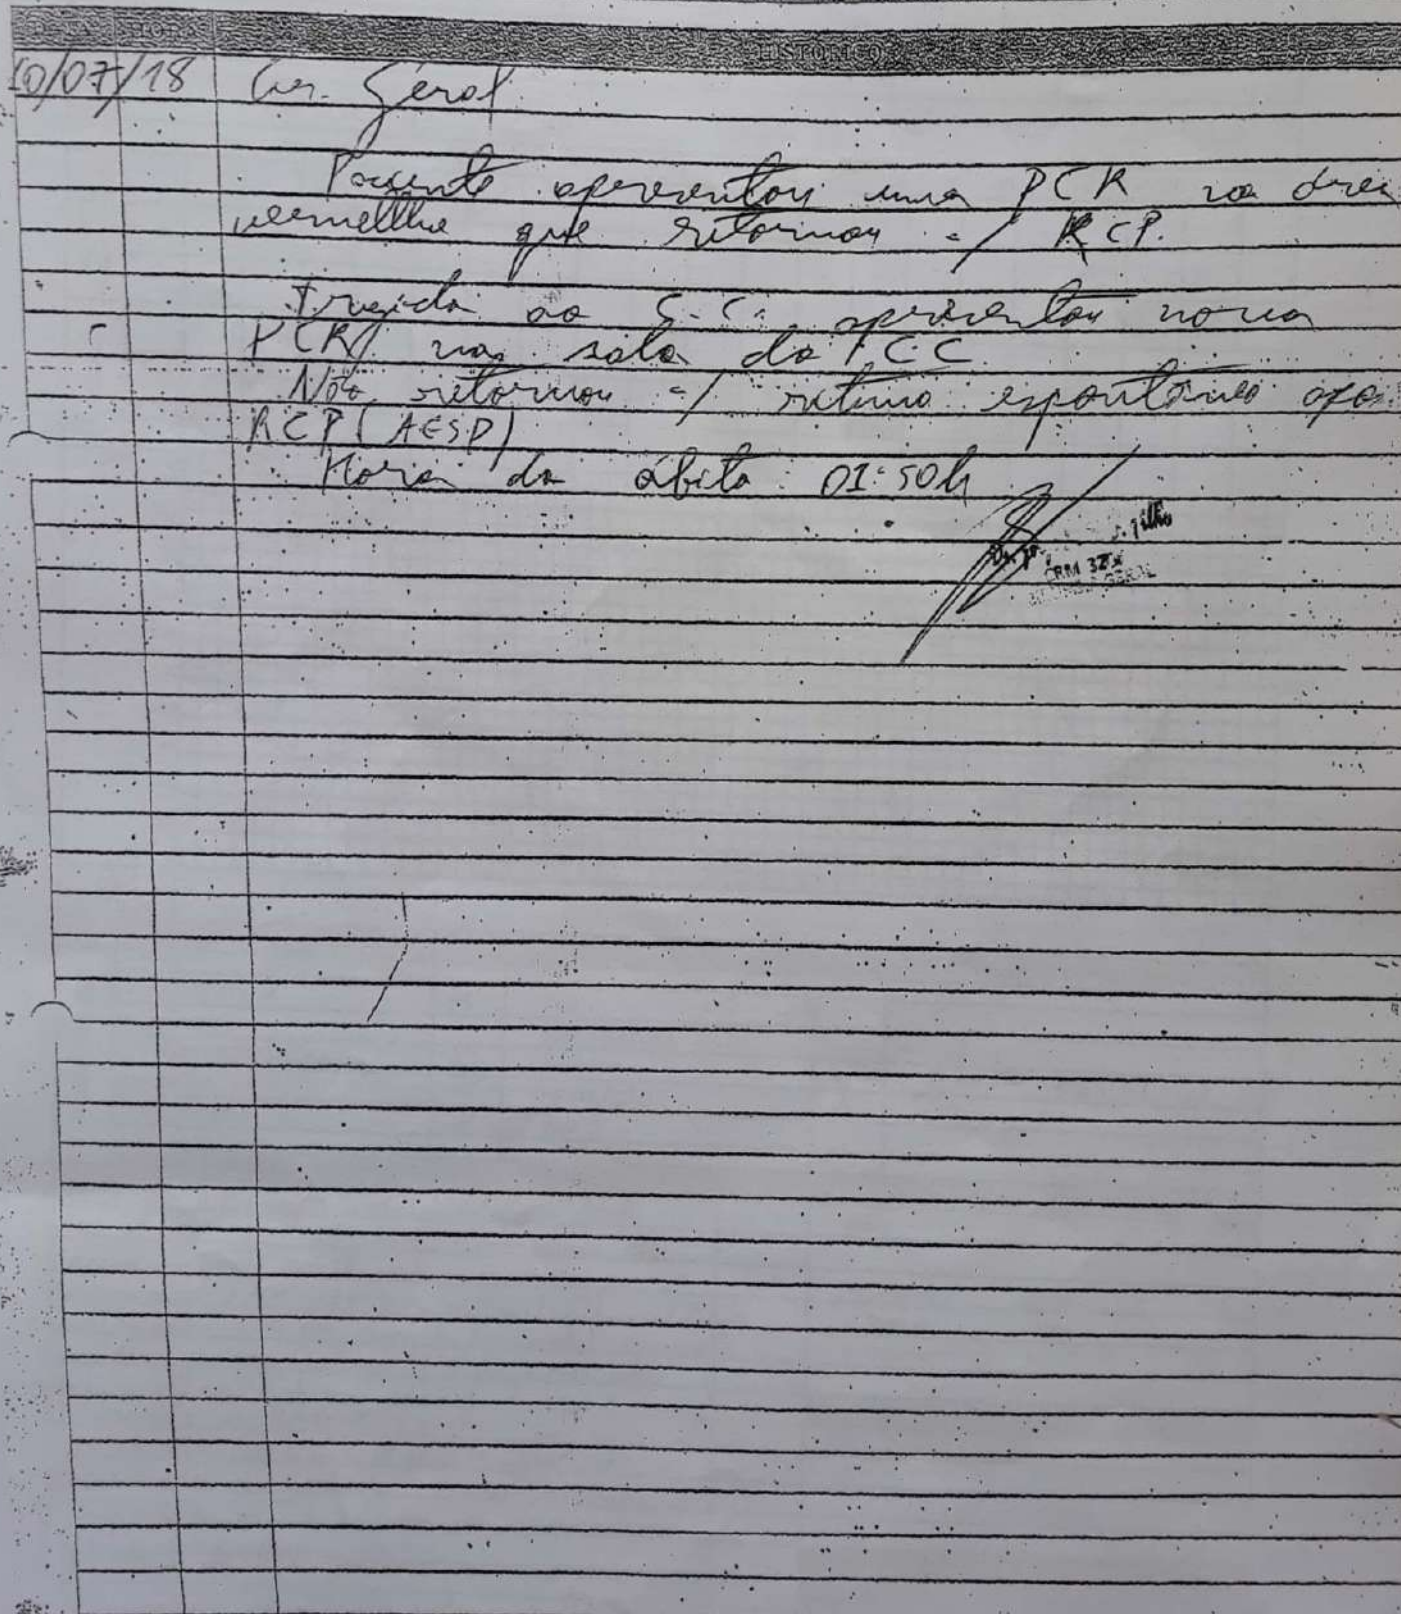 DATA HORA HISTÓRICO
10/07/18 Cir. Geral
Paciente apresentou uma PCR na área
vermelha que retornou c/ RCP.
Trazida ao C.C. apresentou nova
PCR na sala do CC
Não retornou c/ ritmo espontâneo após
RCP (AESP)
Hora do óbito: 01:50h
Dr. Filho
CRM 32
GERAL